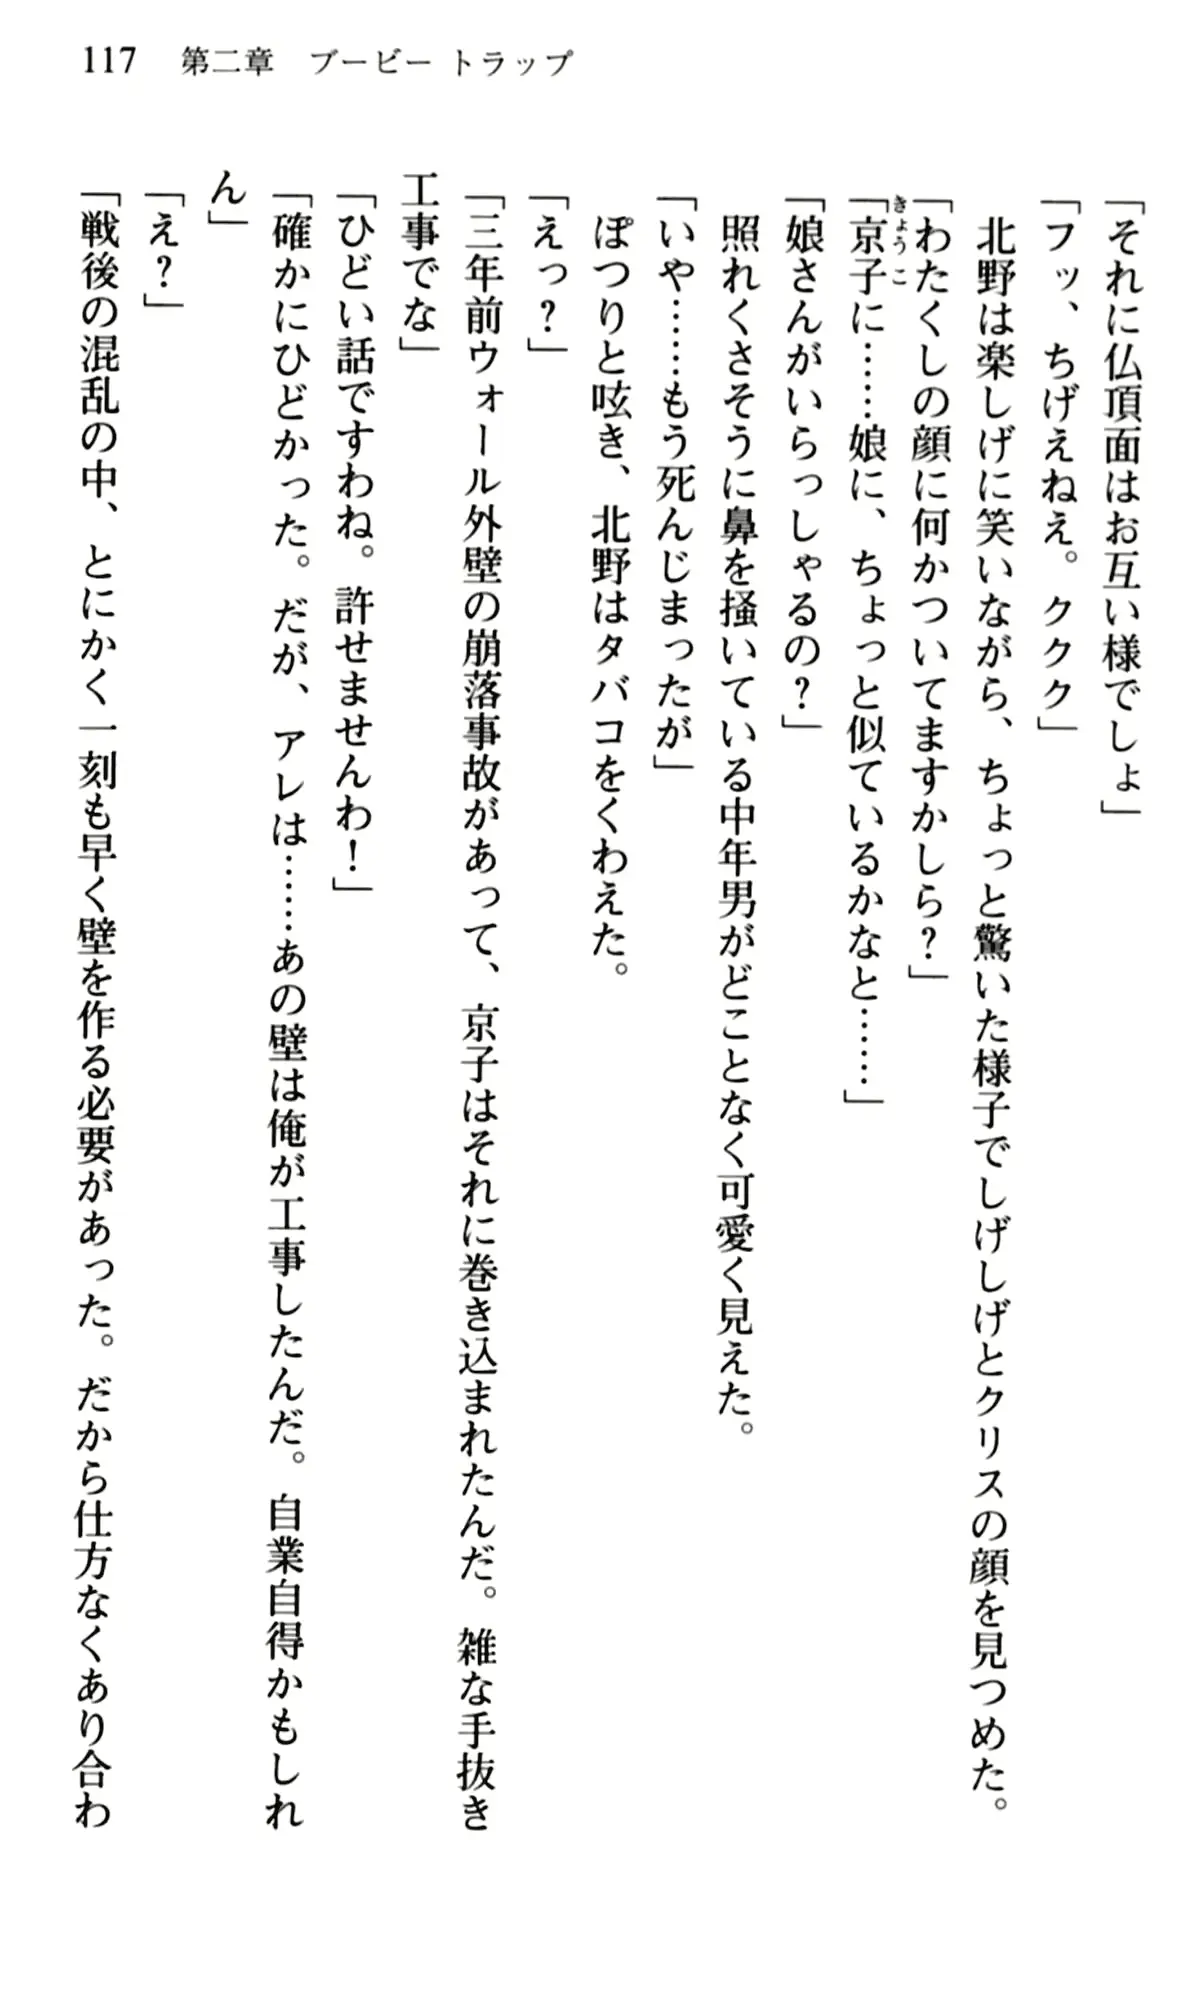 117　第二章　ブービー トラップ
「それに仏頂面はお互い様でしょ」
「フッ、ちげえねえ。ククク」
　北野は楽しげに笑いながら、ちょっと驚いた様子でしげしげとクリスの顔を見つめた。
「わたくしの顔に何かついてますかしら？」
きょうこ
「京子に……娘に、ちょっと似ているかなと……」
「娘さんがいらっしゃるの？」
　照れくさそうに鼻を掻いている中年男がどことなく可愛く見えた。
「いや……もう死んじまったが」
　ぽつりと呟き、北野はタバコをくわえた。
「えっ？」
「三年前ウォール外壁の崩落事故があって、京子はそれに巻き込まれたんだ。雑な手抜き
工事でな」
「ひどい話ですわね。許せませんわ！」
「確かにひどかった。だが、アレは……あの壁は俺が工事したんだ。自業自得かもしれ
ん」
「え？」
「戦後の混乱の中、とにかく一刻も早く壁を作る必要があった。だから仕方なくあり合わ